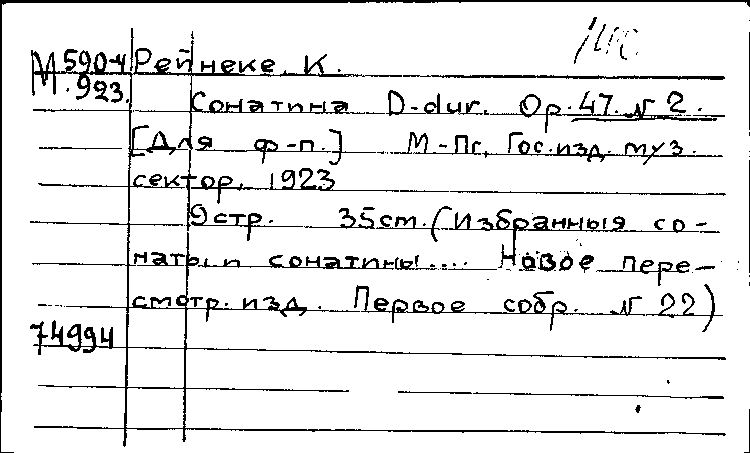 М590-4 Рейнеке, К.
М.923.
Сонатина D-dur. Ор. 47. N 2.
[Для ф-п.] М.-Пг, Гос. изд. муз.
сектор, 1923
9 стр. 35 cm. (Избранныя со-
наты и сонатины.... Новое пере-
смотр. изд. Первое собр. N 22)
74994